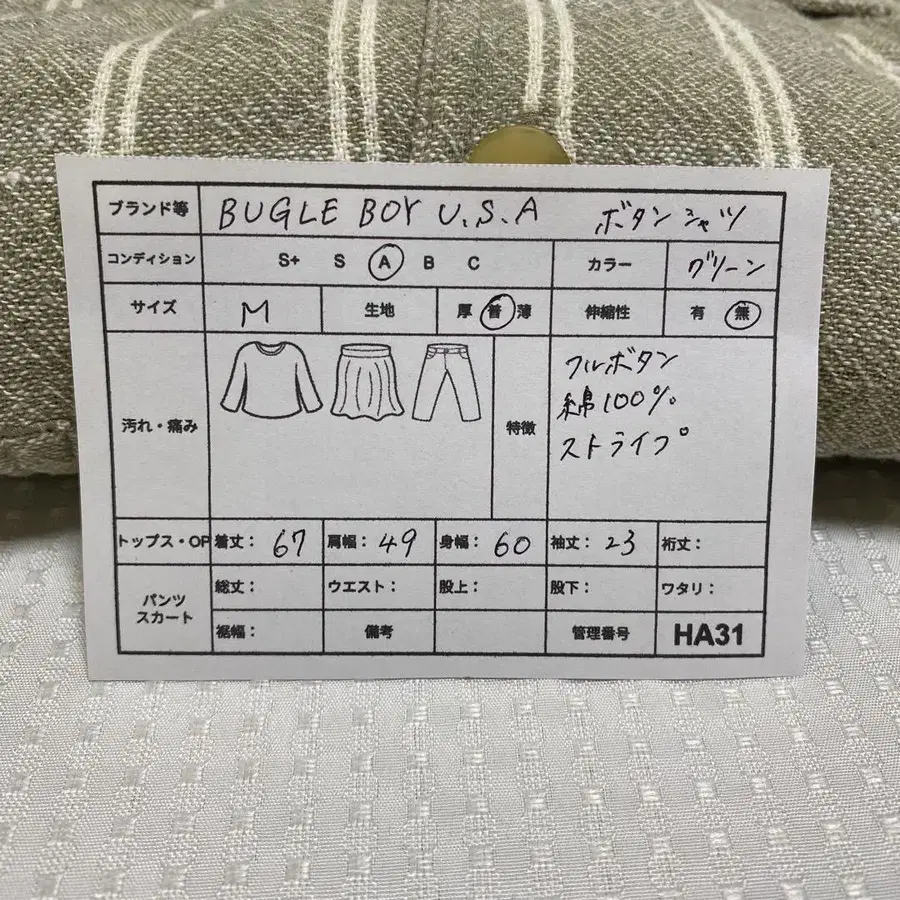 ブランド等 BUGLE BOY U.S.A ボタンシャツ
コンディション S+ S A B C カラー グリーン
サイズ M 生地 厚 普 薄 伸縮性 有 無
汚れ・痛み 特徴 フルボタン
綿100%
ストライプ
トップス・OP 着丈: 67 肩幅: 49 身幅: 60 袖丈: 23 裄丈:
パンツ スカート 総丈: ウエスト: 股上: 股下: ワタリ:
裾幅: 備考 管理番号 HA31